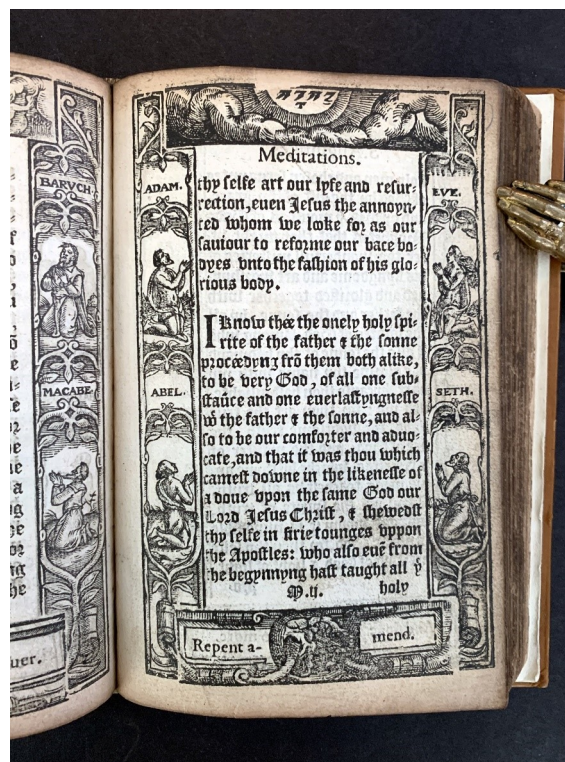 BARVCH.
MACABE.
uer.
יהוה
Meditations.
ADAM.
EVE.
ABEL.
SETH.
thy selfe art our lyfe and resur-
rection, euen Jesus the annoyn-
ted whom we looke for as our
sauiour to reforme our bace bo-
dyes vnto the fashion of his glo-
rious body.
I Know thée the onely holy spi-
rite of the father & the sonne
procédyng frō them both alike,
to be very God, of all one sub-
staūce and one euerlastyngnesse
wt the father & the sonne, and al-
so to be our comforter and aduo-
cate, and that it was thou which
camest downe in the likenesse of
a doue vpon the same God our
Lord Jesus Christ, & shewedst
thy selfe in firie tounges vppon
the Apostles: who also euē from
the begynnyng hast taught all ye
M.ii. holy
Repent a-
mend.